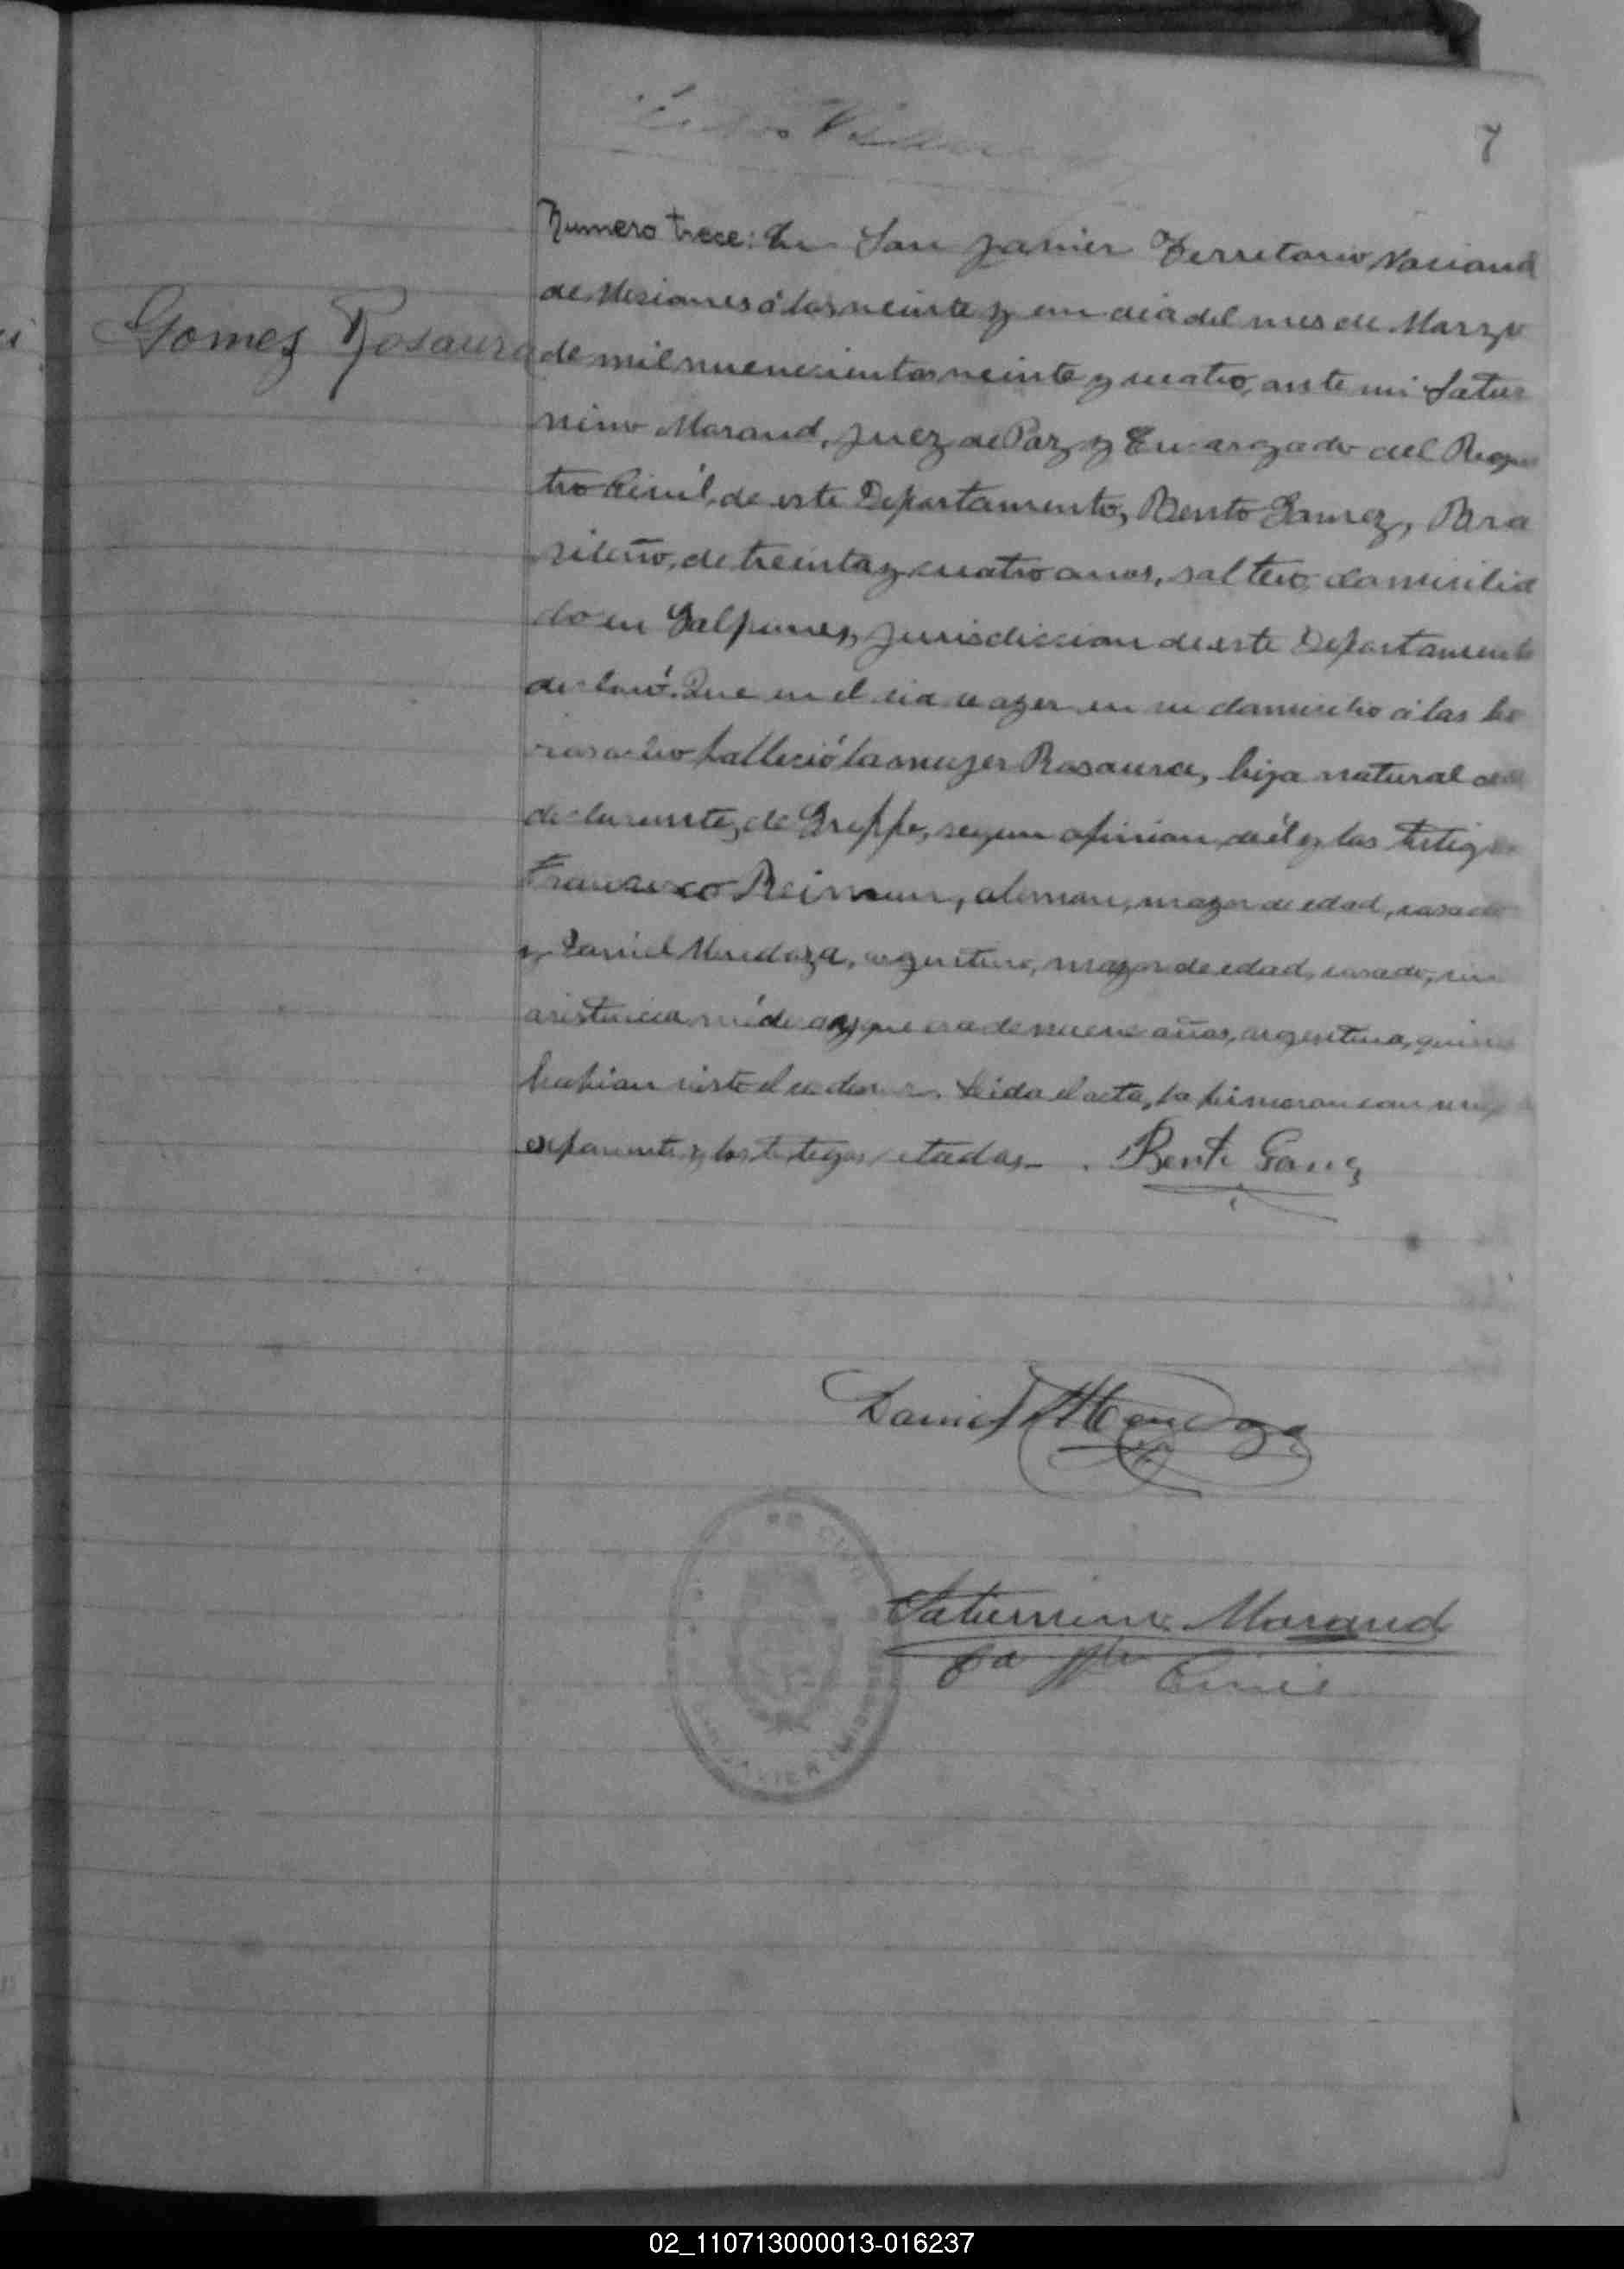 7
Numero trece: En San Javier Territorio Nacional
de Misiones á los veinte y un dia del mes de Marzo
Gomez Rosaura
de mil nuevecientos veinte y cuatro, ante mi Satur
nino Morand, Juez de Paz y Encargado del Regis
tro Civil, de este Departamento, Bento Gomez, Bra
sileño, de treinta y cuatro anos, soltero, domicilia
do en Galpones, jurisdiccion de este Departamento
declaró: Que en el dia de ayer en su domicilio á las ho
ras ocho falleció la mujer Rosaura, hija natural del
declarante, de Greppe, segun opinion de él y los testigos
Francisco Reiman, aleman, mayor de edad, casado
y Daniel Mendoza, argentino, mayor de edad, casado, sin
asistencia médica, que era de nueve años, argentina, quienes
habian visto el cadaver. Leida el acta, la firmaron con migo el
esponente y los testigos citados. Bento Gomez
Daniel Mendoza
Saturnino Morand
Civil
SAN JAVIER
02_110713000013-016237